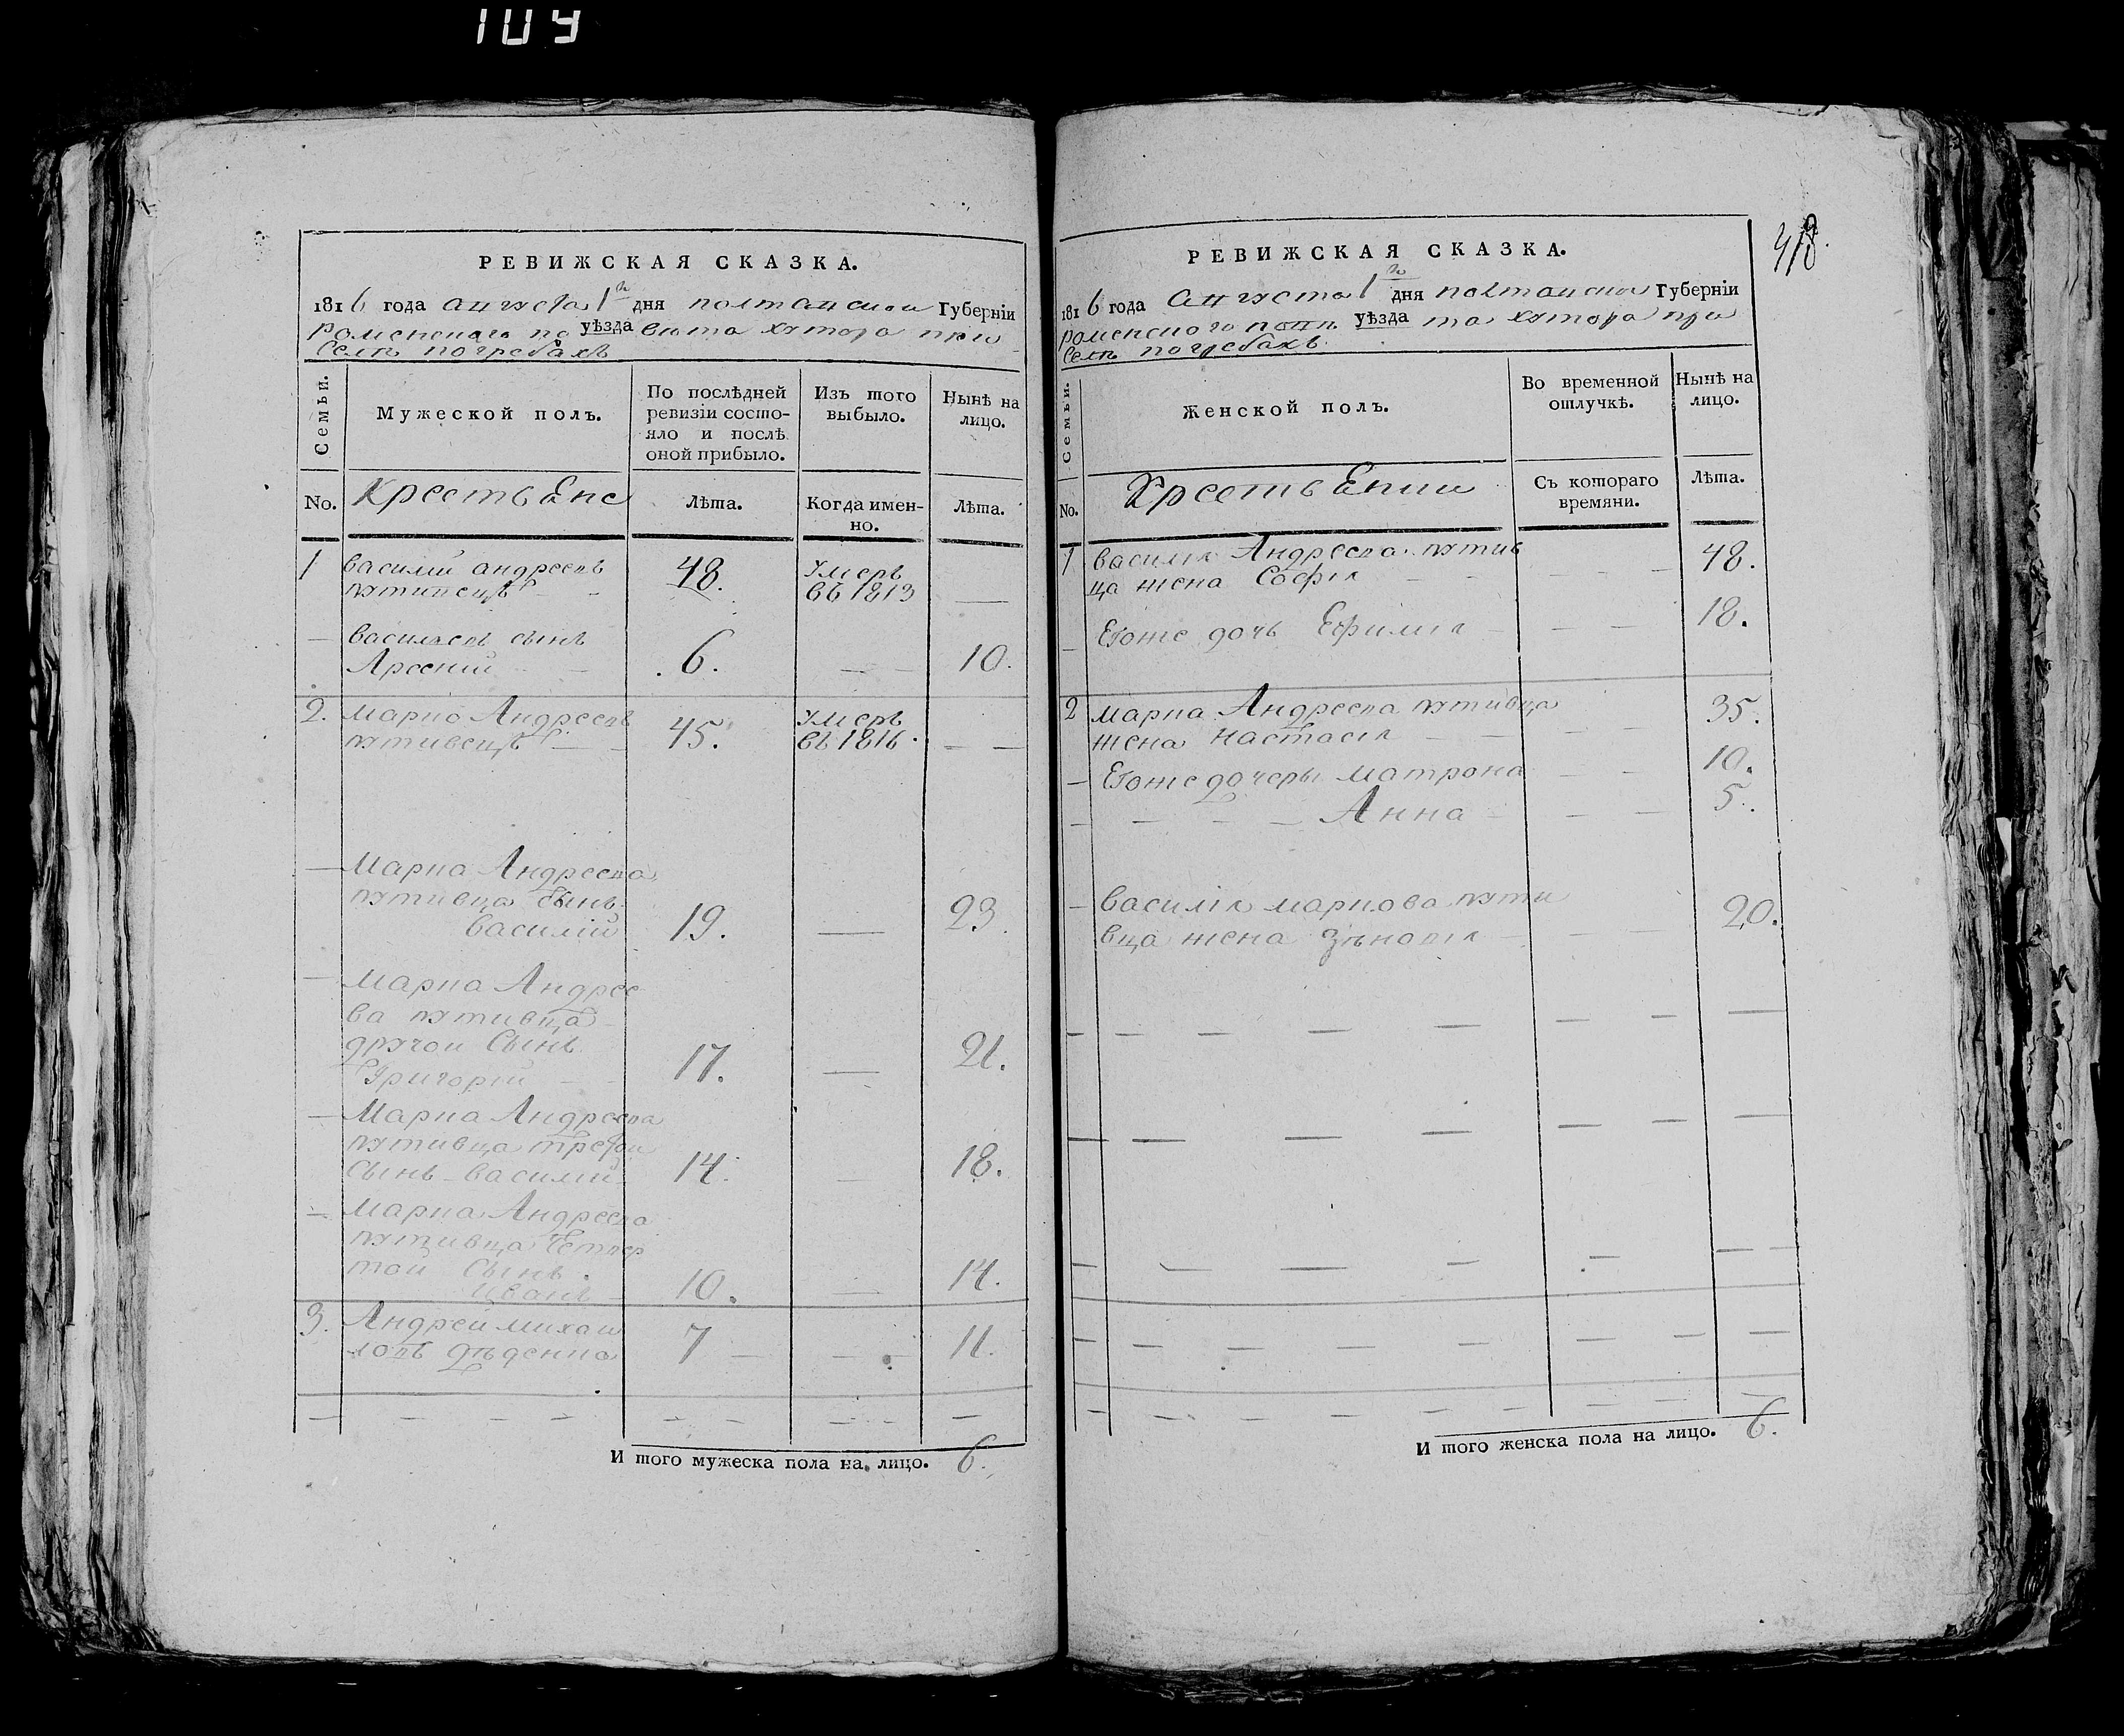 109
РЕВИЖСКАЯ СКАЗКА.
1816 года августа 1го дня полтавской Губерніи
Роменского по уѣзда вѣта хутора при
селѣ погребахъ
Семьи.
Мужеской полъ.
По послѣдней ревизіи состо-
яло и послѣ
оной прибыло.
Изъ того
выбыло.
Нынѣ на
лицо.
No.
Крестьяне
Лѣта.
Когда имен-
но.
Лѣта.
1 василій андреевъ 48. Умеръ
путивецъ въ 1813
василіевъ сынъ
Арсений 6. 10.
2. марко Андреевъ 45. Умеръ
путивецъ въ 1816
Марка Андреева
путивца сынъ
василій 19. 23.
Марка Андрее
ва путивца
другой Сынъ
Григорій 17. 21.
Марка Андреева
путивца третой
сынъ василий 14. 18.
Марка Андреева
путивца Четвер
той Сынъ
Иванъ 10. 14.
3. Андрей михаи
ловъ дѣденко 7 11.
И того мужеска пола на лицо. 6.
418
РЕВИЖСКАЯ СКАЗКА.
1816 года августа 1го дня полтавской Губерніи
роменского повѣ уѣзда та хутора при
селѣ погребахъ
Семьи.
Женской полъ.
Во временной
отлучкѣ.
Нынѣ на
лицо.
No.
Крестьянки
Съ котораго
времяни.
Лѣта.
1 василія Андреева путив
ца жена Софія 48.
Егоже дочь Ефимія 18.
2 марка Андреева путивца
жена настасія 35.
Егоже дочеры матрона 10.
Анна 5.
василія маркова пути
вца жена Зѣновія 20.
И того женска пола на лицо. 6.